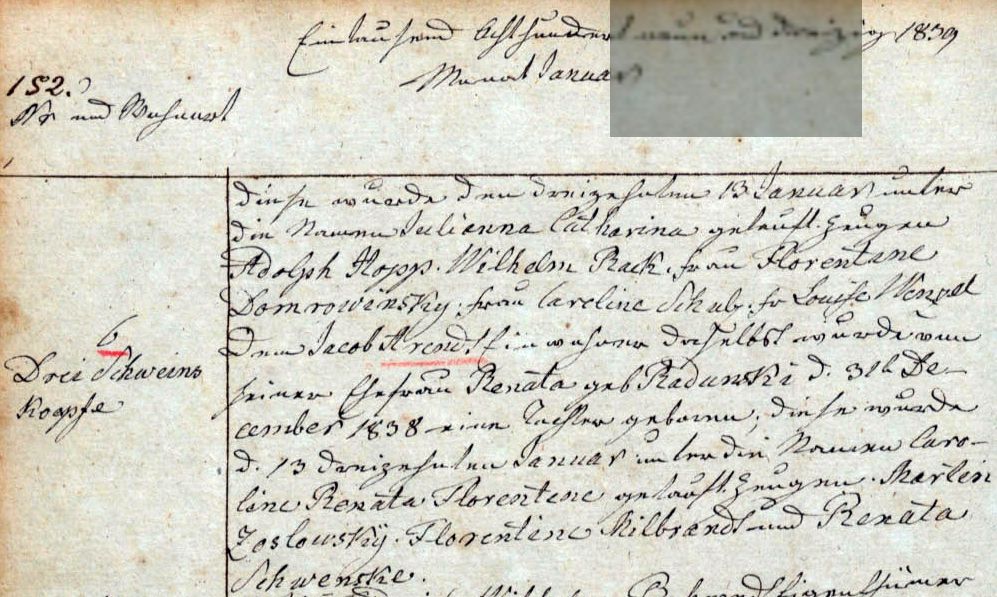 Eintausend Achthundert neun und dreizig 1839
Monat Januar
152.
Nr und Wohnort
diese wurde den dreizehnten 13 Januar unter
die Namen Julianna Catharina getauft. Zeugen
Adolph Hopp. Wilhelm Rack. frau Florentine
Domrowinsky. frau Careline Schulz. fr Louise Wenzel
6
Drei Schweins
Koepfe
Dem Jacob Arendt Einwohner daselbst wurde von
seiner Ehefrau Renata geb Radunski d. 31t De-
cember 1838 eine Tochter geboren, diese wurde
d. 13 dreizehnten Januar unter die Namen Caro-
line Renata Florentine getauft. Zeugen. Martin
Zoslowsky. Florentine Milbrandt und Renata
Schwenske.